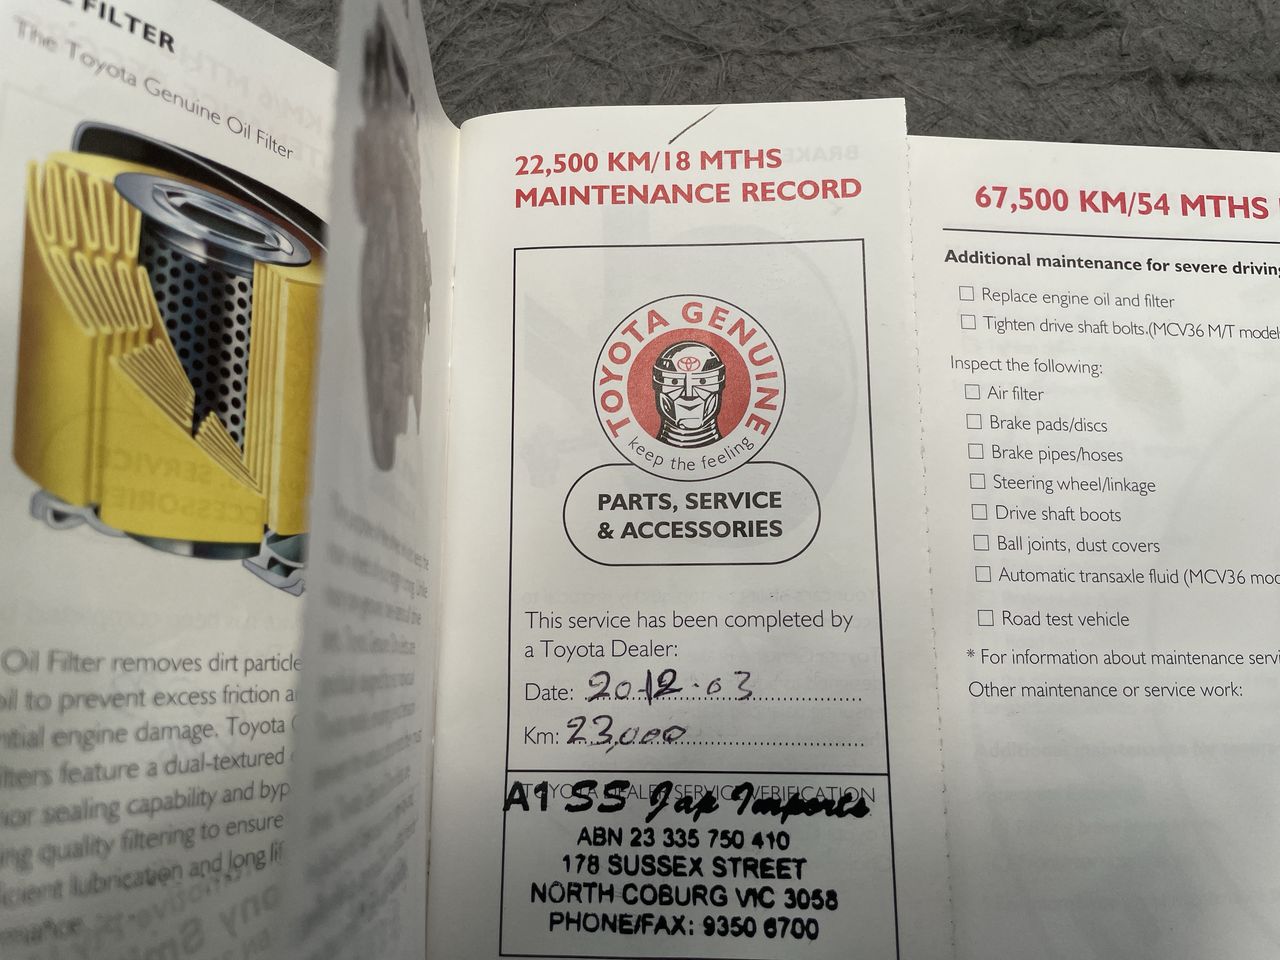 E FILTER
The Toyota Genuine Oil Filter
Oil Filter removes dirt particle
oil to prevent excess friction a
ntial engine damage. Toyota
lters feature a dual-textured
ior sealing capability and byp
ng quality filtering to ensure
icient lubrication and long lif
22,500 KM/18 MTHS
MAINTENANCE RECORD
TOYOTA GENUINE
keep the feeling
PARTS, SERVICE
& ACCESSORIES
This service has been completed by
a Toyota Dealer:
Date: 20.12.03
Km: 23,000
TOYOTA DEALER SERVICE VERIFICATION
A1 SS Jap Imports
ABN 23 335 750 410
178 SUSSEX STREET
NORTH COBURG VIC 3058
PHONE/FAX: 9350 6700
67,500 KM/54 MTHS
Additional maintenance for severe driving
Replace engine oil and filter
Tighten drive shaft bolts.(MCV36 M/T model
Inspect the following:
Air filter
Brake pads/discs
Brake pipes/hoses
Steering wheel/linkage
Drive shaft boots
Ball joints, dust covers
Automatic transaxle fluid (MCV36 mod
Road test vehicle
* For information about maintenance servi
Other maintenance or service work: